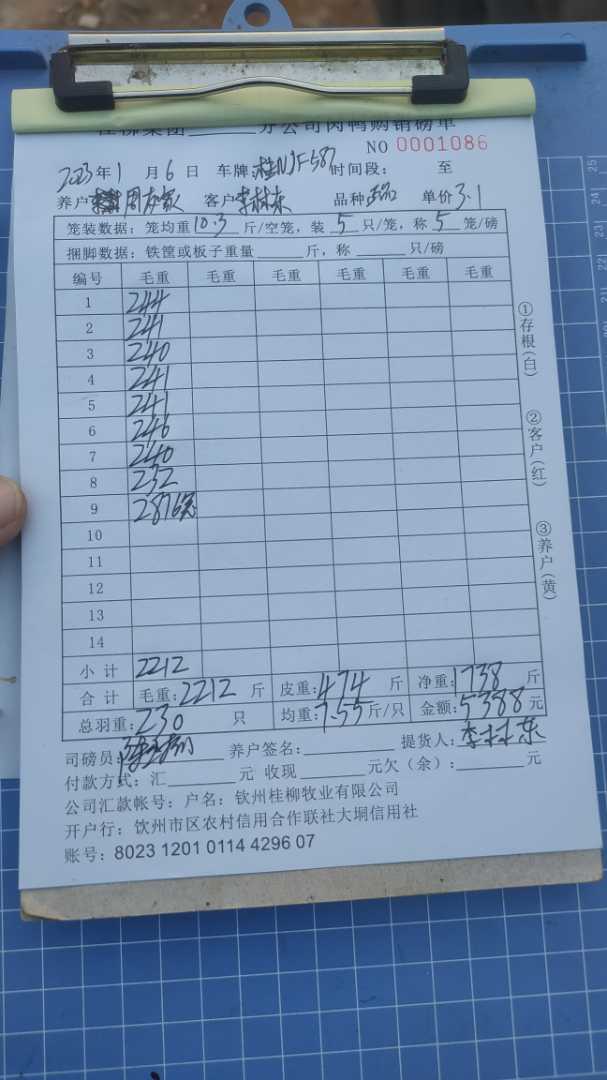 桂柳集团______分公司肉鸭购销磅单
NO 0001086
2023年1月6日 车牌: 桂NJF587 时间段: 至
养户 客户李林东 品种 单价3.1
笼装数据: 笼均重10.3斤/空笼, 装5只/笼, 称5笼/磅
捆脚数据: 铁筐或板子重量______斤, 称______只/磅
编号 毛重 毛重 毛重 毛重 毛重 毛重
1 244
2 241
3 240
4 241
5 241
6 246
7 240
8 232
9 287 6笼
10
11
12
13
14
小计 2212
合计 毛重:2212斤 皮重:474斤 净重:1738斤
总羽重:230只 均重:7.55斤/只 金额:5388元
司磅员: 养户签名:________ 提货人:李林东
付款方式: 汇______元 收现______元欠(余):______元
公司汇款帐号: 户名: 钦州桂柳牧业有限公司
开户行: 钦州市区农村信用合作联社大垌信用社
账号: 8023 1201 0114 4296 07
①存根(白)
②客户(红)
③养户(黄)